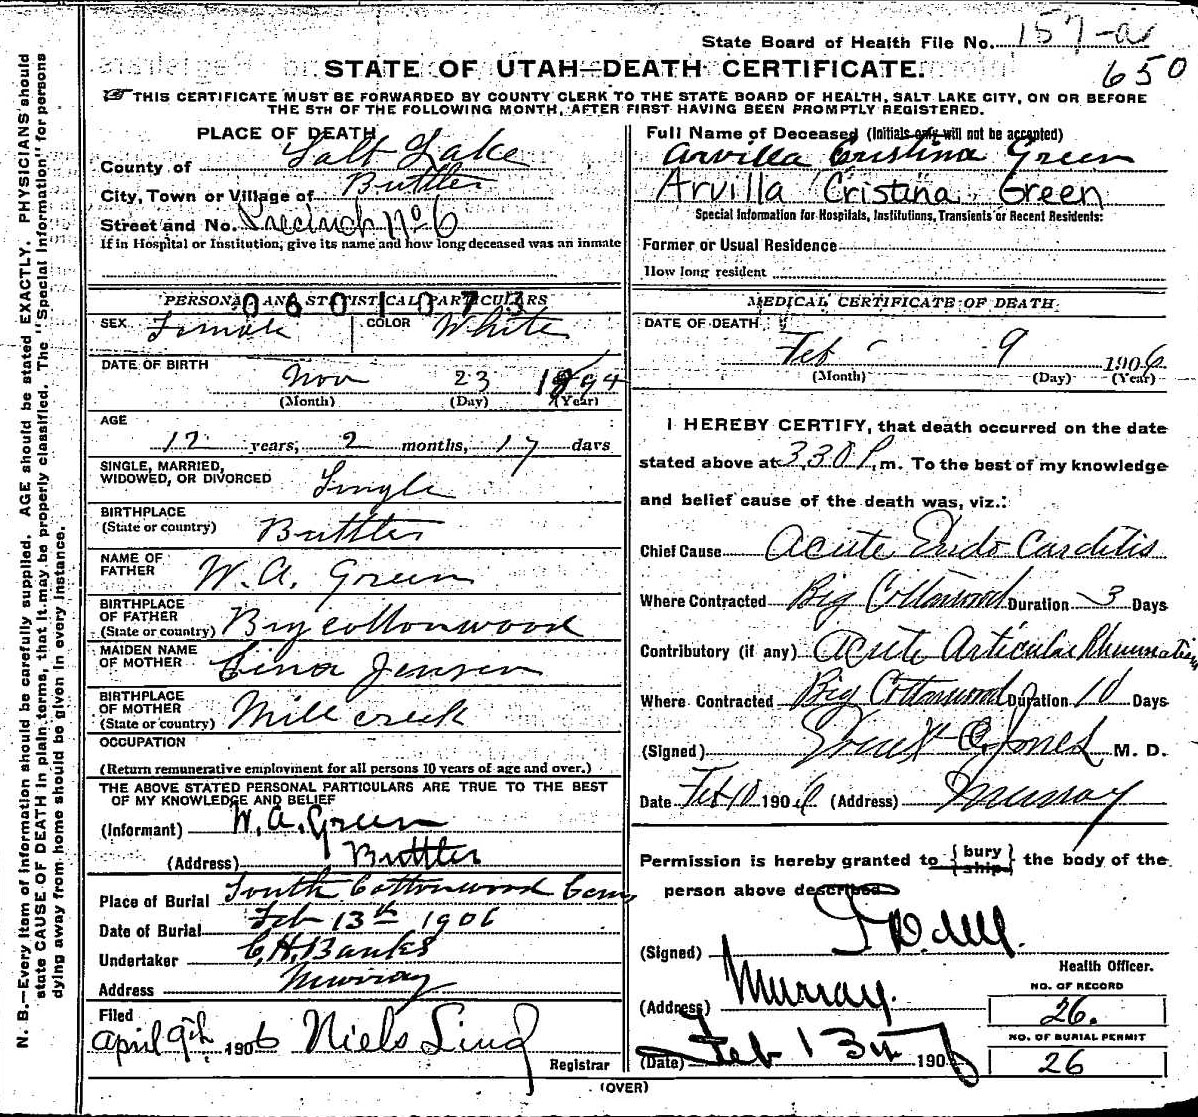 State Board of Health File No. 157-a
650
STATE OF UTAH—DEATH CERTIFICATE.
THIS CERTIFICATE MUST BE FORWARDED BY COUNTY CLERK TO THE STATE BOARD OF HEALTH, SALT LAKE CITY, ON OR BEFORE
THE 5TH OF THE FOLLOWING MONTH, AFTER FIRST HAVING BEEN PROMPTLY REGISTERED.
N. B.—Every item of information should be carefully supplied. AGE should be stated EXACTLY. PHYSICIANS should
state CAUSE OF DEATH in plain terms, that it may be properly classified. The "Special Information" for persons
dying away from home should be given in every instance.
PLACE OF DEATH
County of Salt Lake
City, Town or Village of Buttler
Street and No. Precinct No 6
If in Hospital or Institution, give its name and how long deceased was an inmate
PERSONAL AND STATISTICAL PARTICULARS
0601073
SEX Female COLOR White
DATE OF BIRTH
Nov 23 1894
(Month) (Day) (Year)
AGE
12 years, 2 months, 17 days
SINGLE, MARRIED,
WIDOWED, OR DIVORCED Single
BIRTHPLACE
(State or country) Buttler
NAME OF
FATHER W. A. Green
BIRTHPLACE
OF FATHER
(State or country) Big cottonwood
MAIDEN NAME
OF MOTHER Cina Jensen
BIRTHPLACE
OF MOTHER
(State or country) Mill creek
OCCUPATION
(Return remunerative employment for all persons 10 years of age and over.)
THE ABOVE STATED PERSONAL PARTICULARS ARE TRUE TO THE BEST
OF MY KNOWLEDGE AND BELIEF
(Informant) W. A. Green
(Address) Buttler
Place of Burial South Cottonwood Cem
Date of Burial Feb 13th 1906
Undertaker C. H. Banks
Address Murray
Filed
April 9th, 1906 Niels Lind
Registrar
Full Name of Deceased (Initials only will not be accepted)
Arvilla Cristina Green
Arvilla Cristina Green
Special Information for Hospitals, Institutions, Transients or Recent Residents:
Former or Usual Residence
How long resident
MEDICAL CERTIFICATE OF DEATH
DATE OF DEATH
Feb 9 1906
(Month) (Day) (Year)
I HEREBY CERTIFY, that death occurred on the date
stated above at 3 30 P. m. To the best of my knowledge
and belief cause of the death was, viz.:
Chief Cause Acute Endo Carditis
Where Contracted Big Cottonwood Duration 3 Days
Contributory (if any) Acute Articular Rheumatism
Where Contracted Big Cottonwood Duration 10 Days
(Signed) Jones M. D.
Date Feb 10 1906 (Address) Murray
Permission is hereby granted to {bury
ship} the body of the
person above described
(Signed)
Health Officer.
(Address) Murray.
NO. OF RECORD
26.
NO. OF BURIAL PERMIT
26
(Date) Feb 13th 1906
(OVER)